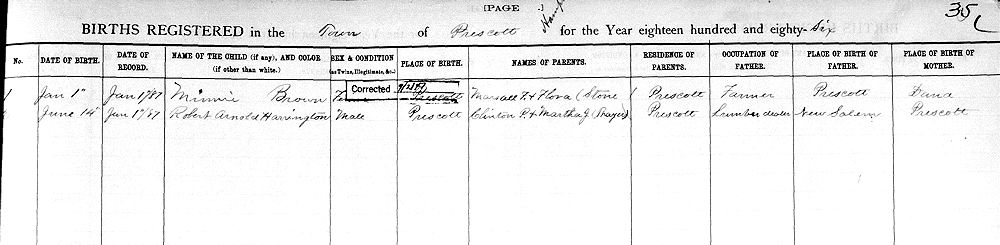 [PAGE .] 35
BIRTHS REGISTERED in the Town of Prescott for the Year eighteen hundred and eighty-Six
No. DATE OF BIRTH. DATE OF RECORD. NAME OF THE CHILD (if any), AND COLOR (if other than white.) SEX & CONDITION (as Twins, Illegitimate, &c.) PLACE OF BIRTH. NAMES OF PARENTS. RESIDENCE OF PARENTS. OCCUPATION OF FATHER. PLACE OF BIRTH OF FATHER. PLACE OF BIRTH OF MOTHER.
1 Jan 1" Jan 1/87 Minnie Brown Corrected Prescott Marsall F. & Flora (Stone) Prescott Farmer Prescott Dana
June 14" Jan 1/87 Robert Arnold Harrington Male Prescott Clinton P. & Martha J (Thayer) Prescott Lumber dealer New Salem Prescott